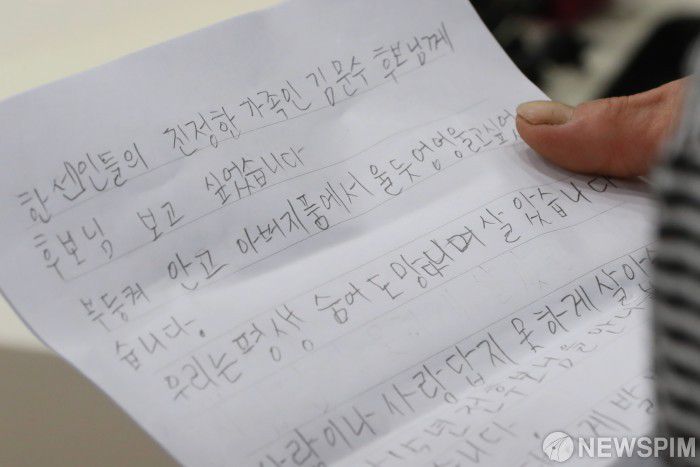 한센인들의 진정한 가족인 김문수 후보님께
후보님 보고 싶었습니다
부등켜 안고 아버지품에서 울듯 엉엉 울고싶었
습니다.
우리는 평생 숨어 도망다니며 살았습니다
사람이나 사람답지 못하게 살아
NEWSPIM